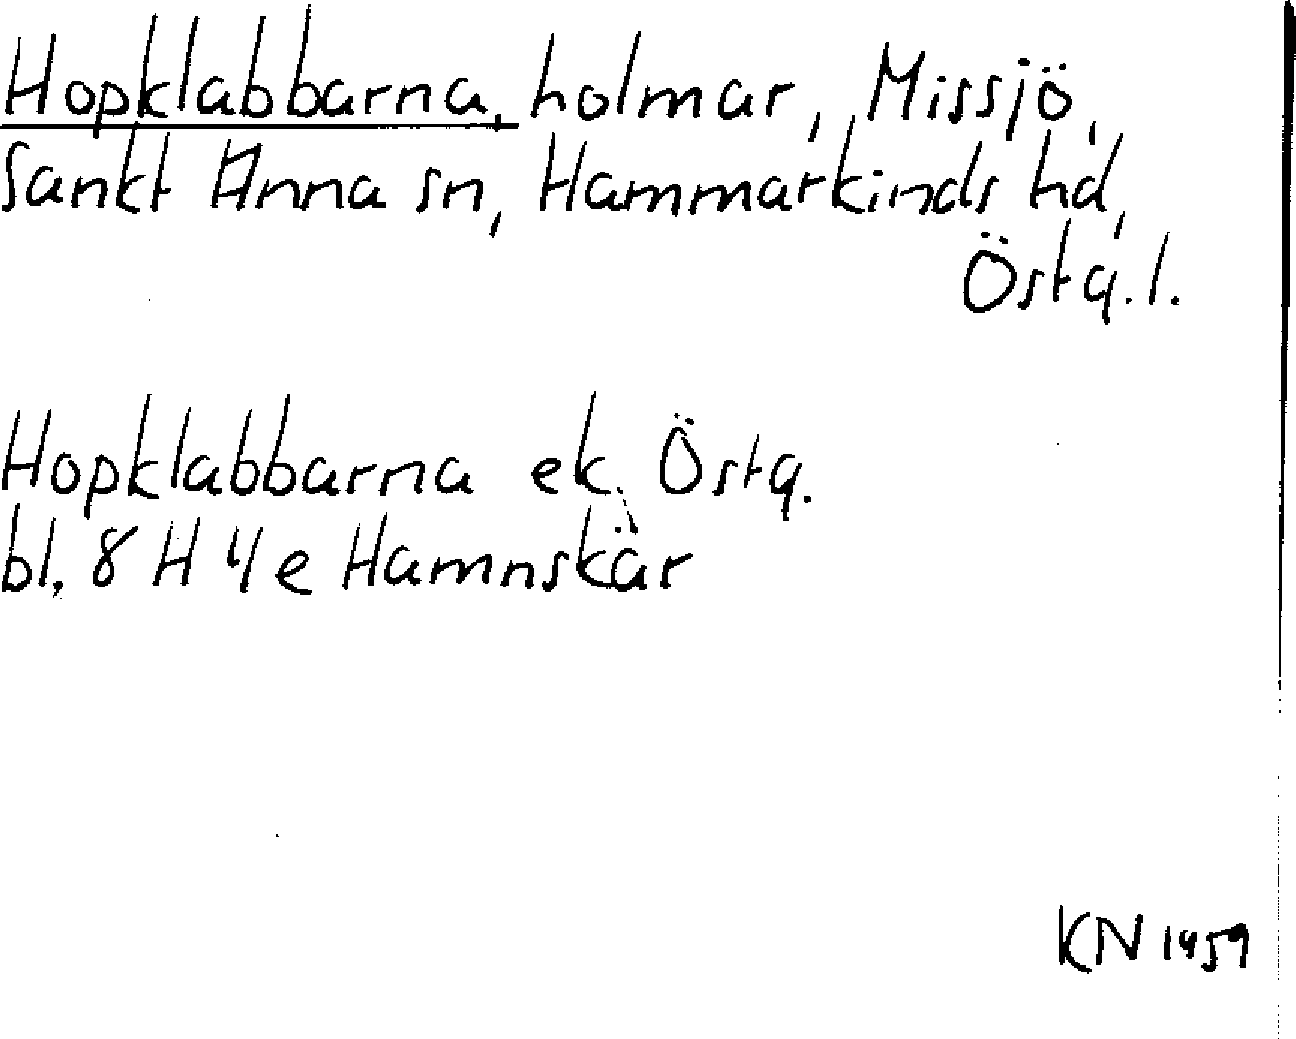 Hopklabbarna, holmar, Missjö,
Sankt Anna sn, Hammarkinds hd,
Östg. l.
Hopklabbarna ek. Östg.
bl. 8 H 4 e Hamnskär
KN 1959